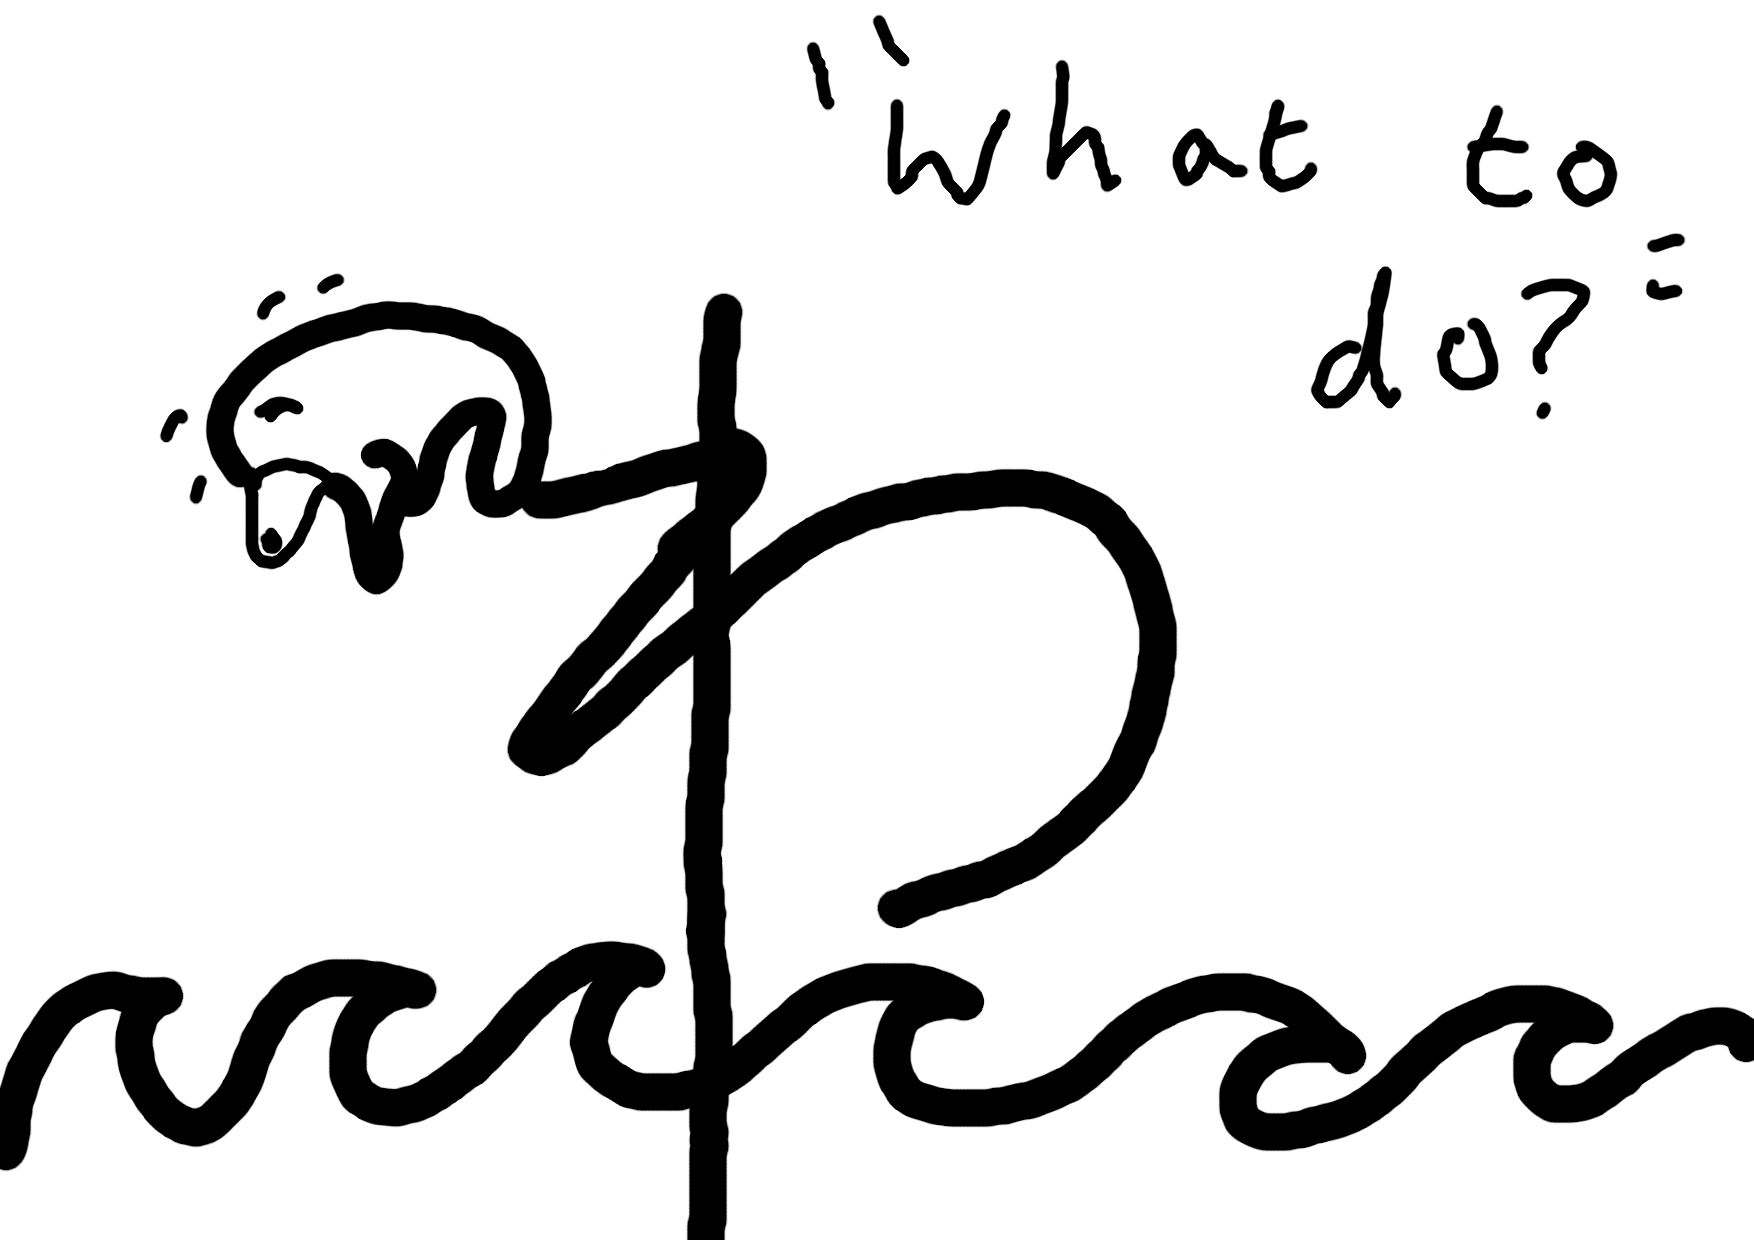 "What to
do?"